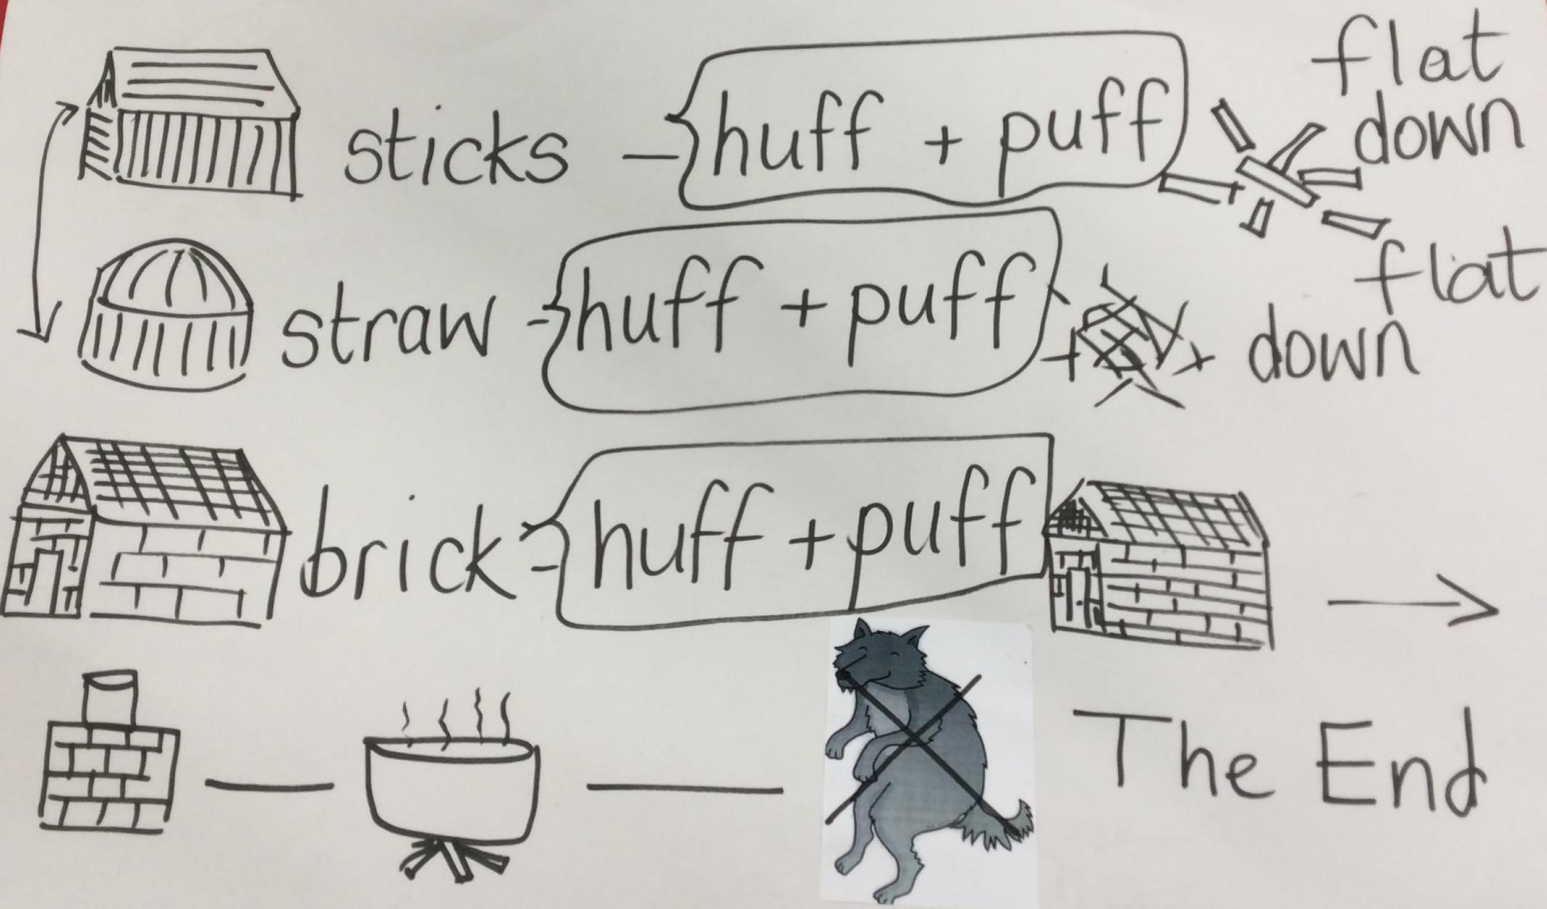 sticks – huff + puff flat down
straw - huff + puff flat down
brick - huff + puff
The End